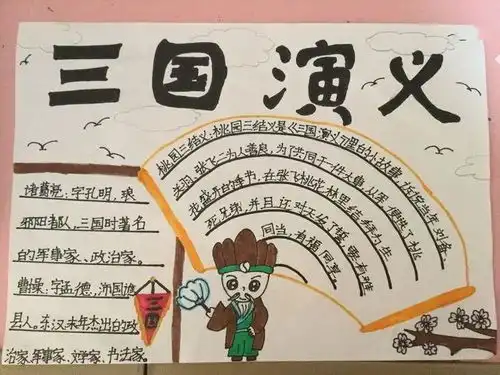 三国演义
桃园三结义:桃园三结义是《三国演义》里的小故事,传说当年刘备、
关羽、张飞三为人善良,为了共同干一件大事,便选了桃
花盛开的季节,在张飞桃花林里结拜为生
死兄弟,并且还对天发了誓,要有难
同当,有福同享
诸葛亮:字孔明,琅
琊阳都人,三国时著名
的军事家、政治家。
曹操:字孟德,沛国谯
县人。东汉末年杰出的政
治家、军事家、文学家、书法家。
三国